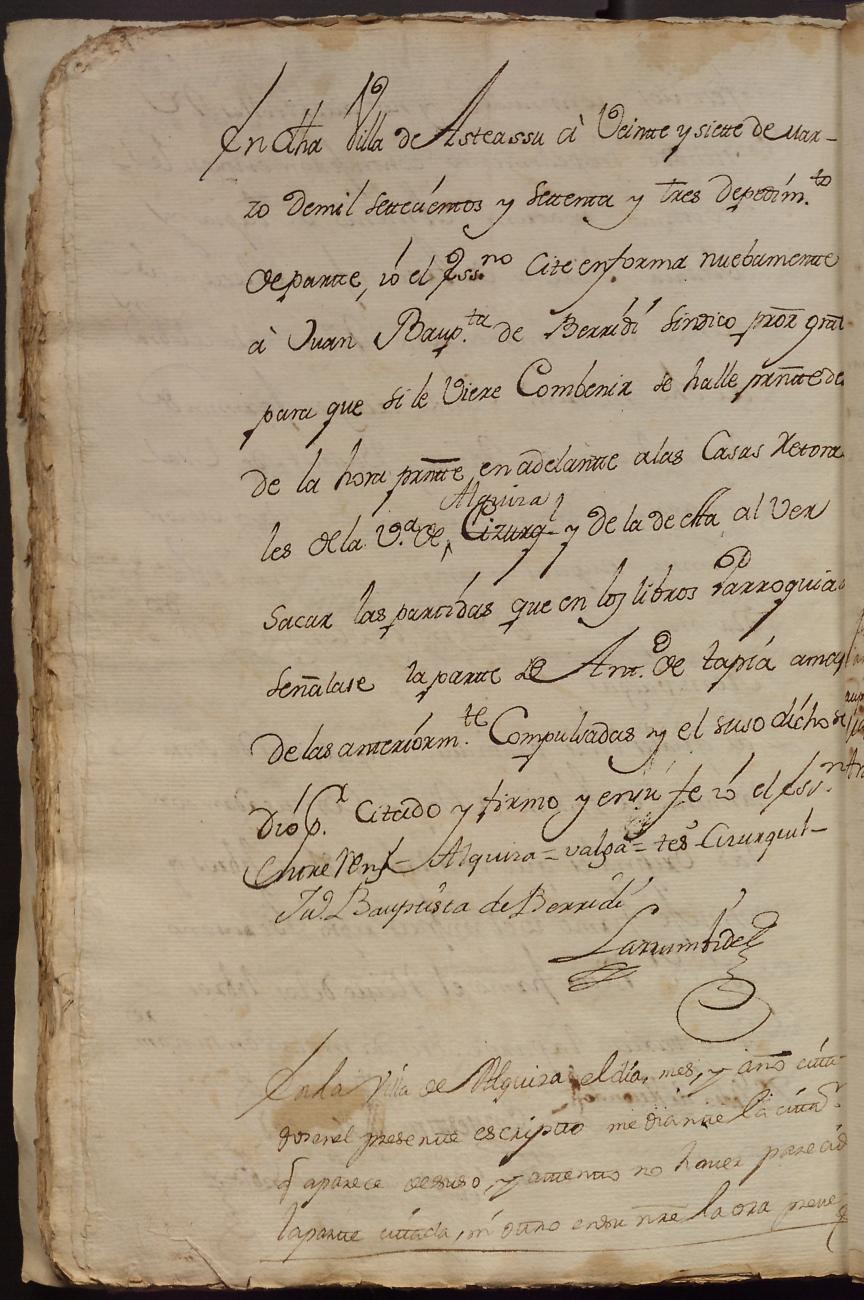 En dha Villa de Asteassu à Veinte y siette de Mar-
zo demil settecientos y settenta y tres depedim.to
de partte, ió el Ess.no Cite enforma nuebamente
à Juan Baup.ta de Berridi sindico pror gral
para que si le Viere Combenir se halle prntte
de la hora prntte en adelantte alas Casas Retora
Alquiza
les de la V.a de Cizurql y de la de esta al Ver
sacar las partidas que en los libros Parroquia
señalase la partte de Ant.o de tapia amas
de las anteriorm.te Compulsadas y el suso dicho se
dió p.r Citado y firmo y en su fe ió el Ess.no
Entre Rens = Alquiza = valga = tes Cizurquil-
Ju Bauptista de Berridi
Larrumbide
En la Villa de Alquiza, el día, mes, y año cita
dos en el presente escripto mediante la citta.n
q aparece desuso, y attento no haver parecid
la partte cittada, ni ottro en su nre la ora preve